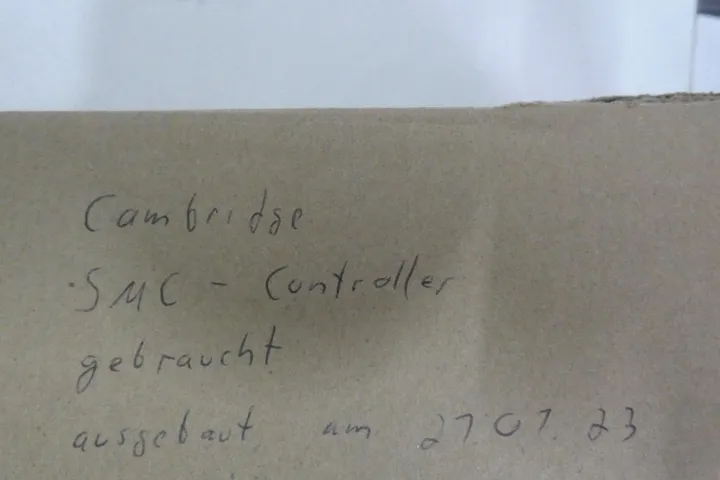 Cambridge
SMC - Controller
gebraucht
ausgebaut am 27.07.23